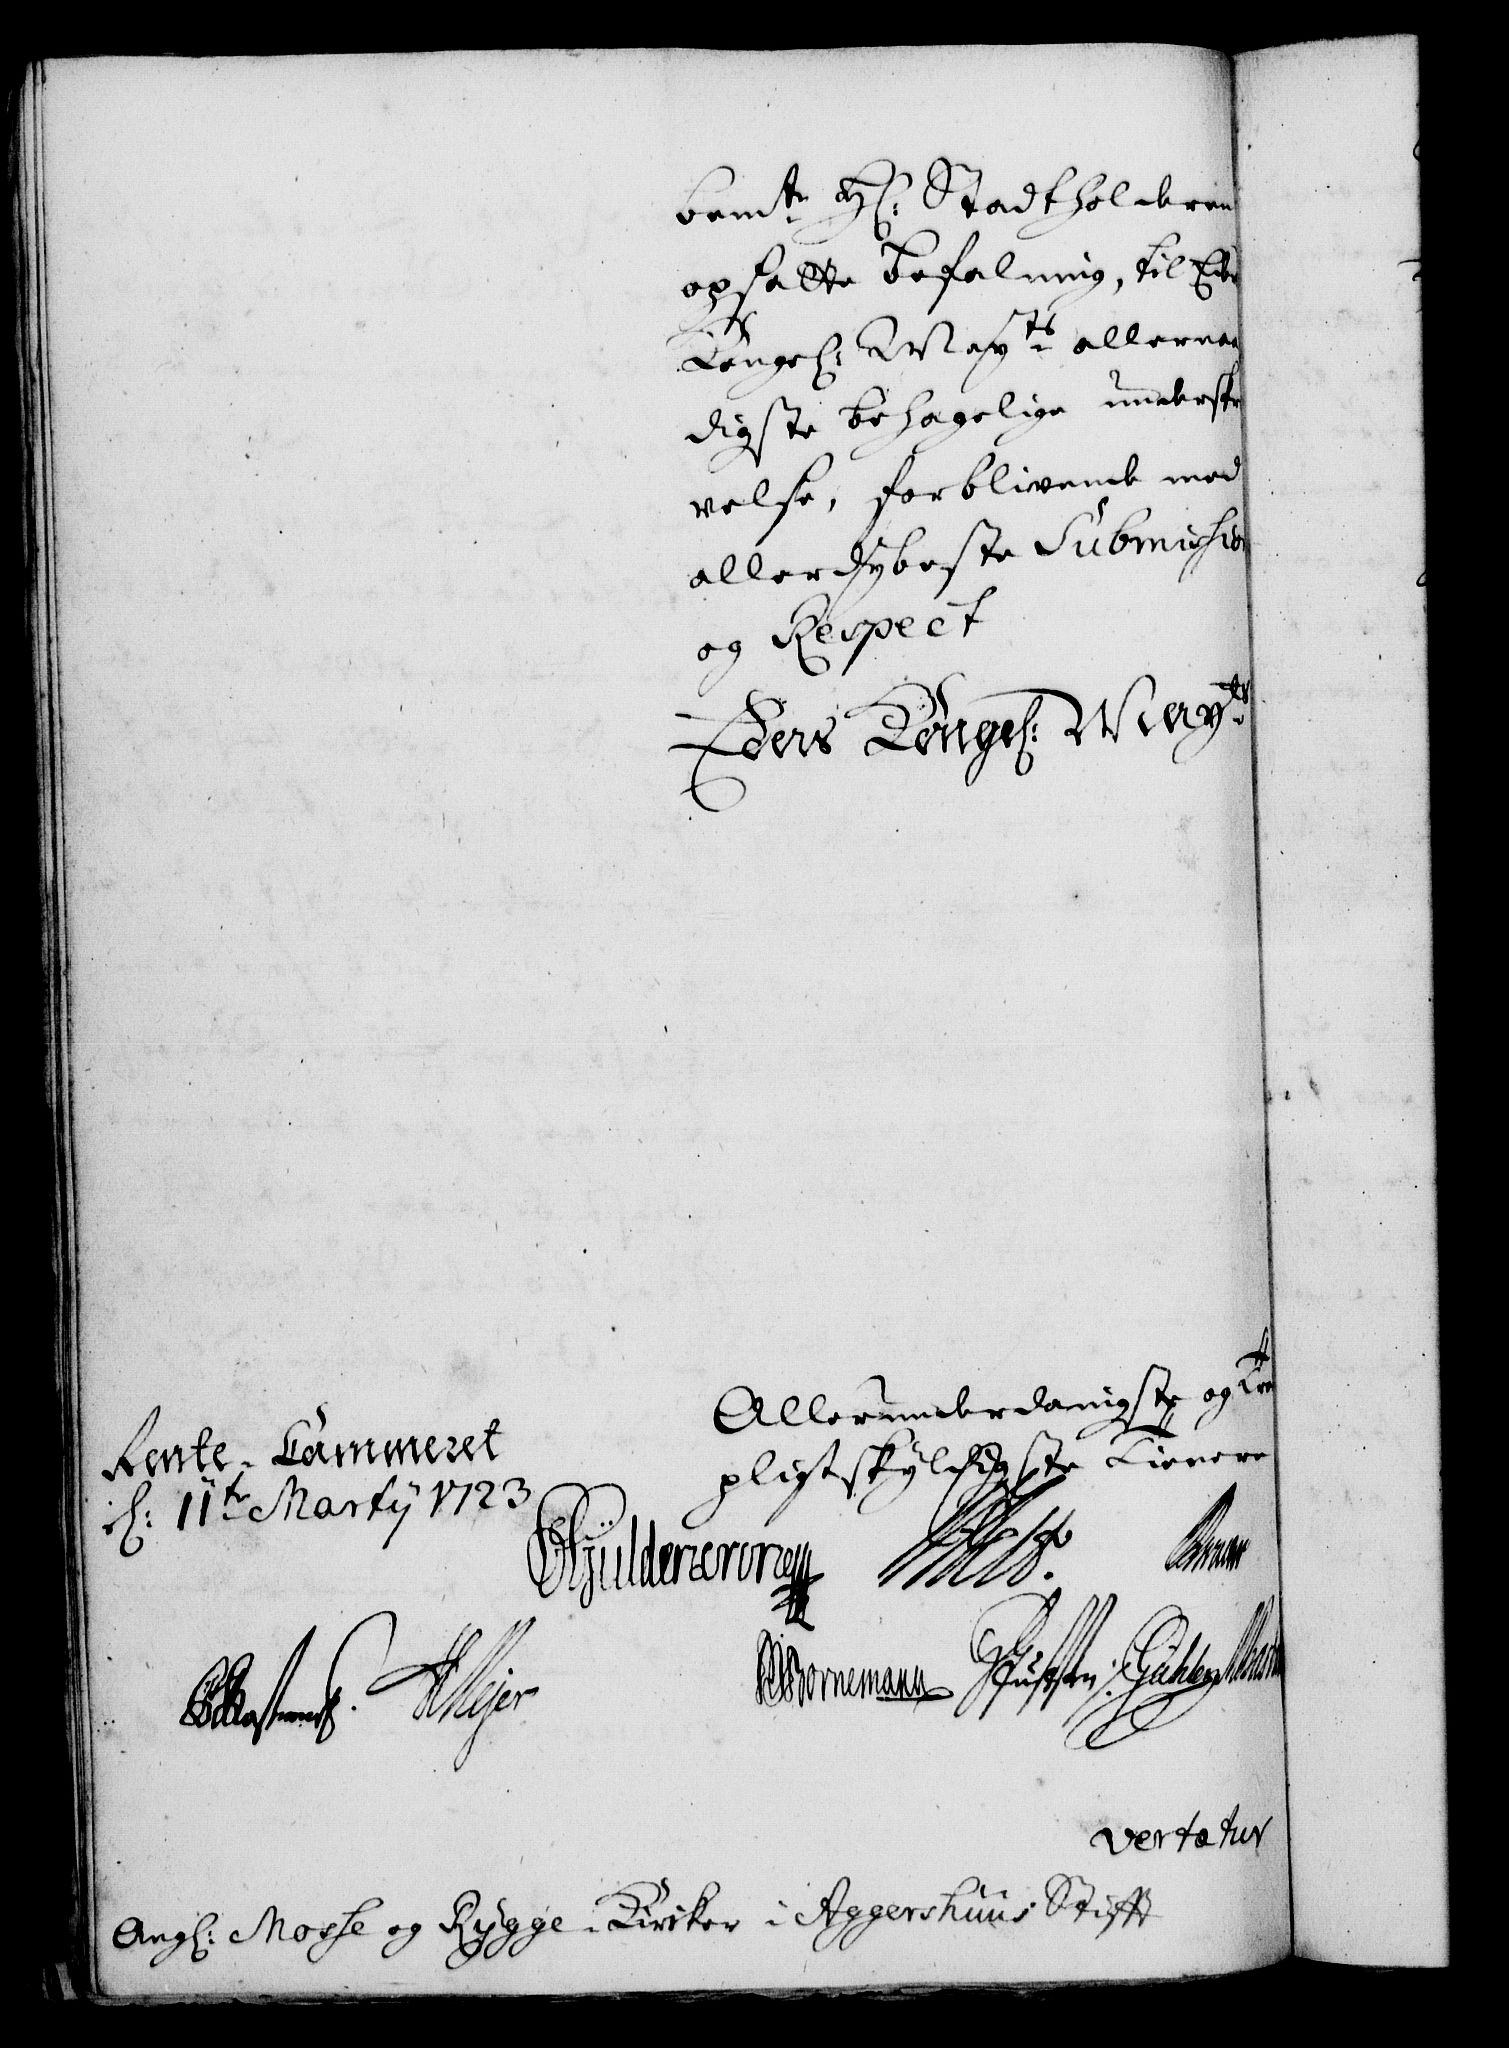 bemte Hl: Stadtholderen
opsatte befalning, til Eders
Kongel: Mayts allernaa
digste behagelige underskr
velse, forblivende med
allerdybeste Submission
og Respect
Eders Kongel: Mayts
Allerunderdanigste og Troe
pligtskyldigste Tienere
Rente-Cammeret
d: 11te Martij 1723
Güldencrone
Meyer WBornemann
vertatur
Angl: Mosse og Rygge Kirker i Aggershuus Stifft